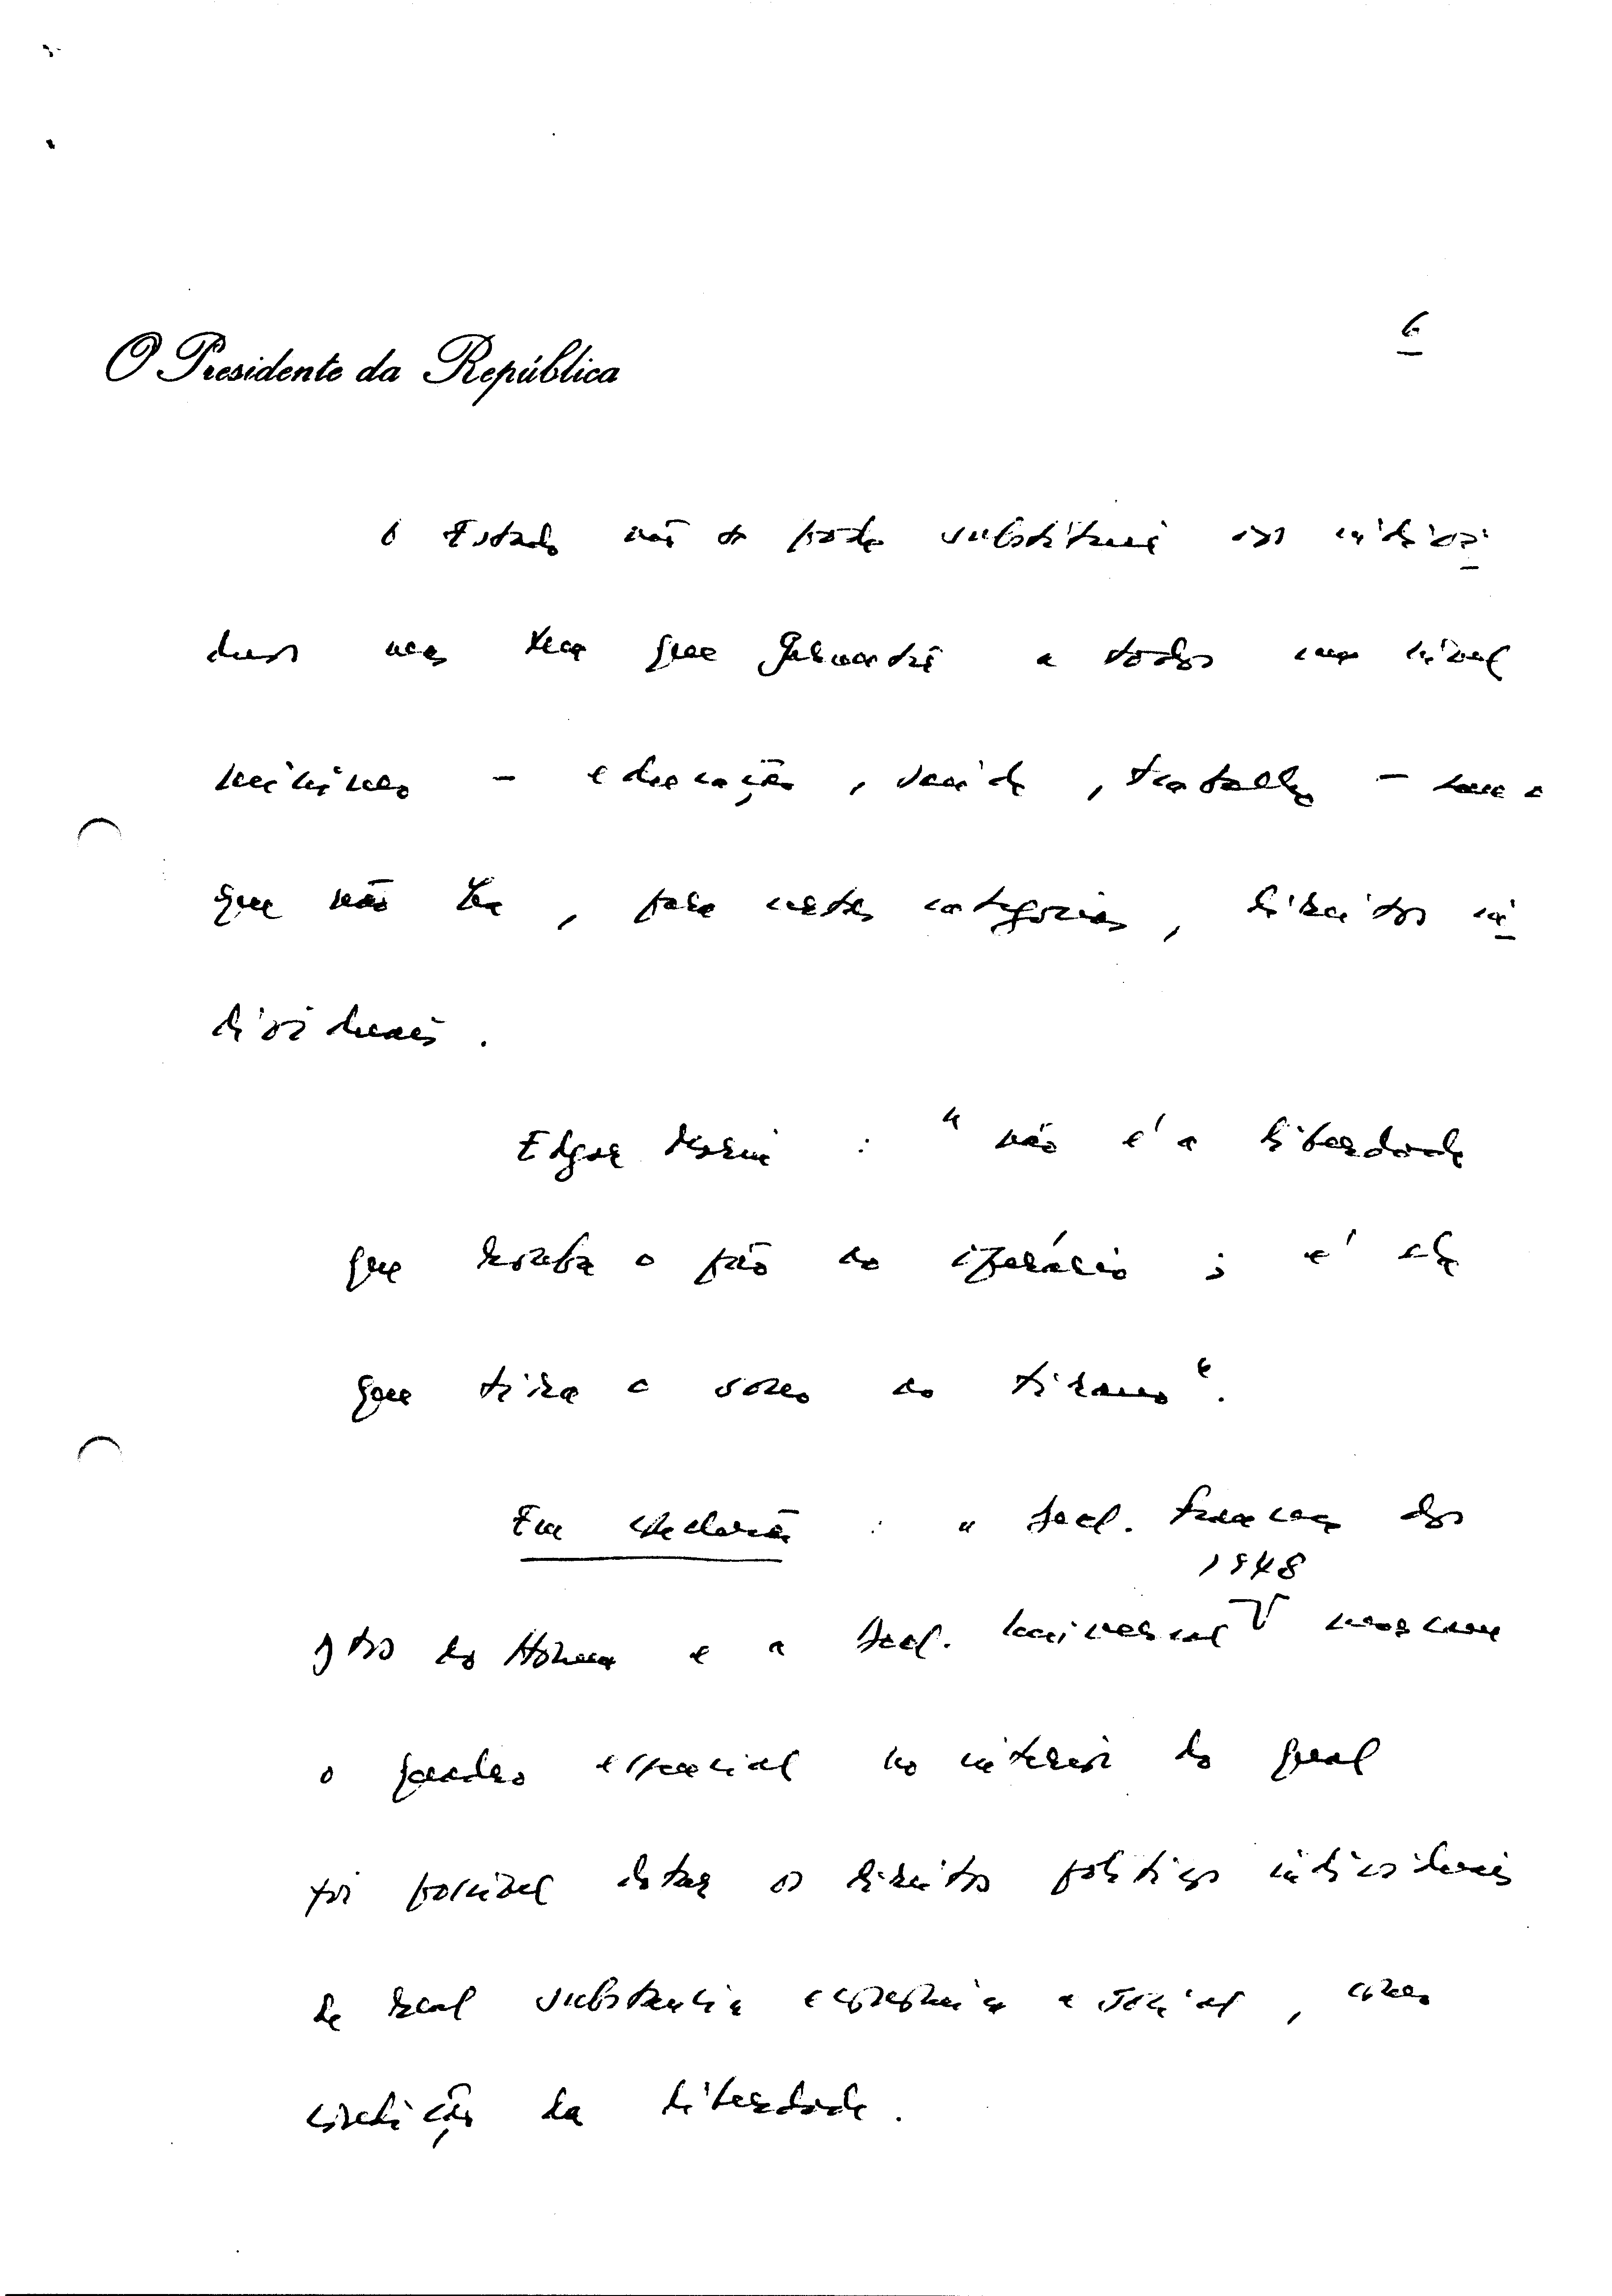 6
O Presidente da República
O Estado não se pode substituir aos indiví
duos mas tem que garantir a todos um nível
mínimo – educação, saúde, trabalho – sem o
que não há, para certas categorias, direitos in
dividuais.
Edgar Morin : "não é a liberdade
que rouba o pão ao operário ; é ela
que tira o sono ao tirano".
Em conclusão : a Decl. Francesa dos
Dtos do Homem e a Decl. Universal
1948
o quadro essencial no interior do qual
foi possível dotar os direitos políticos individuais
de real substância económica e social, como
condição da liberdade.